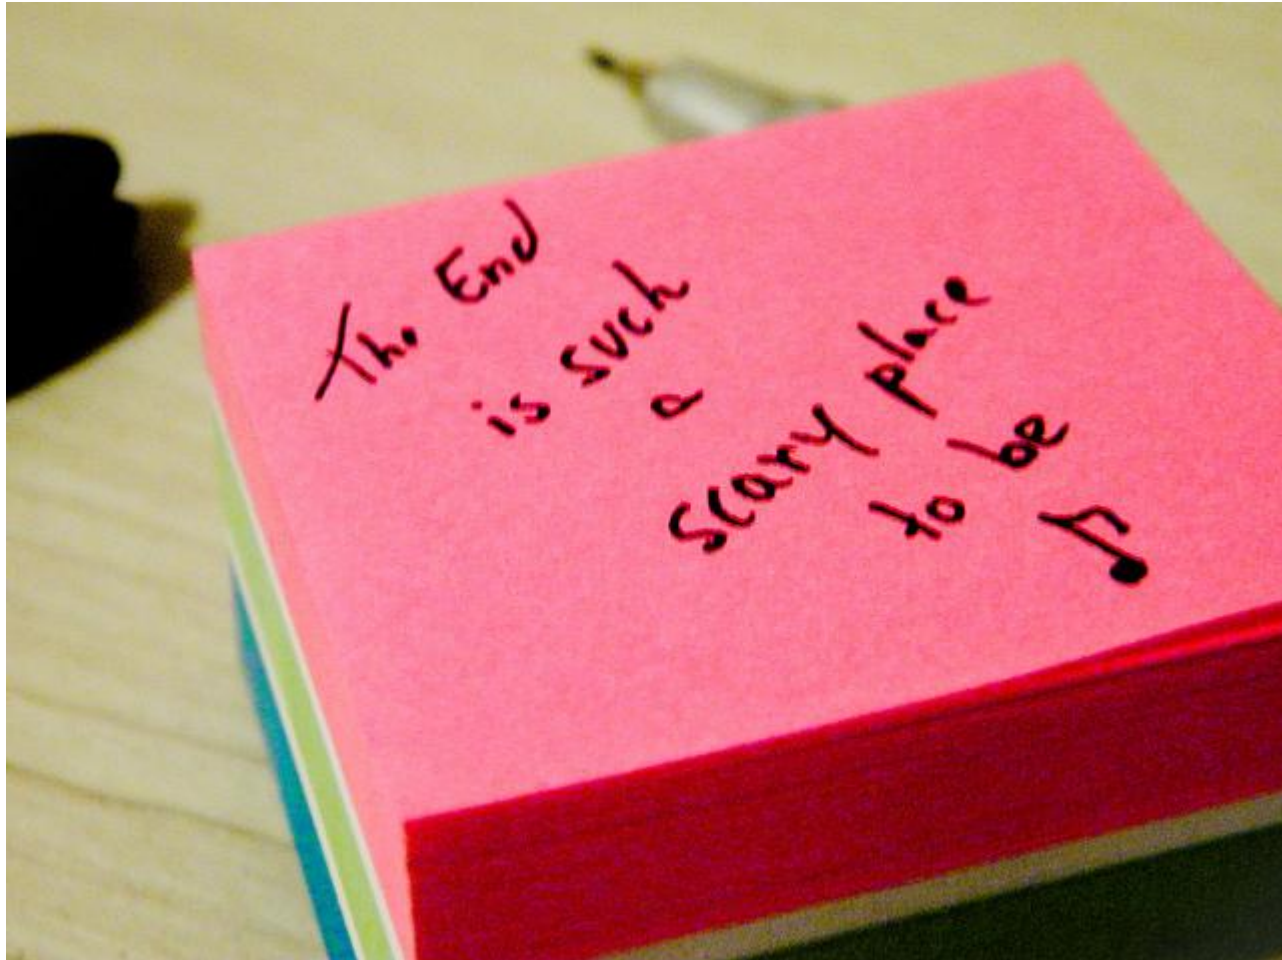 The End
is such
a
scary place
to be
♪